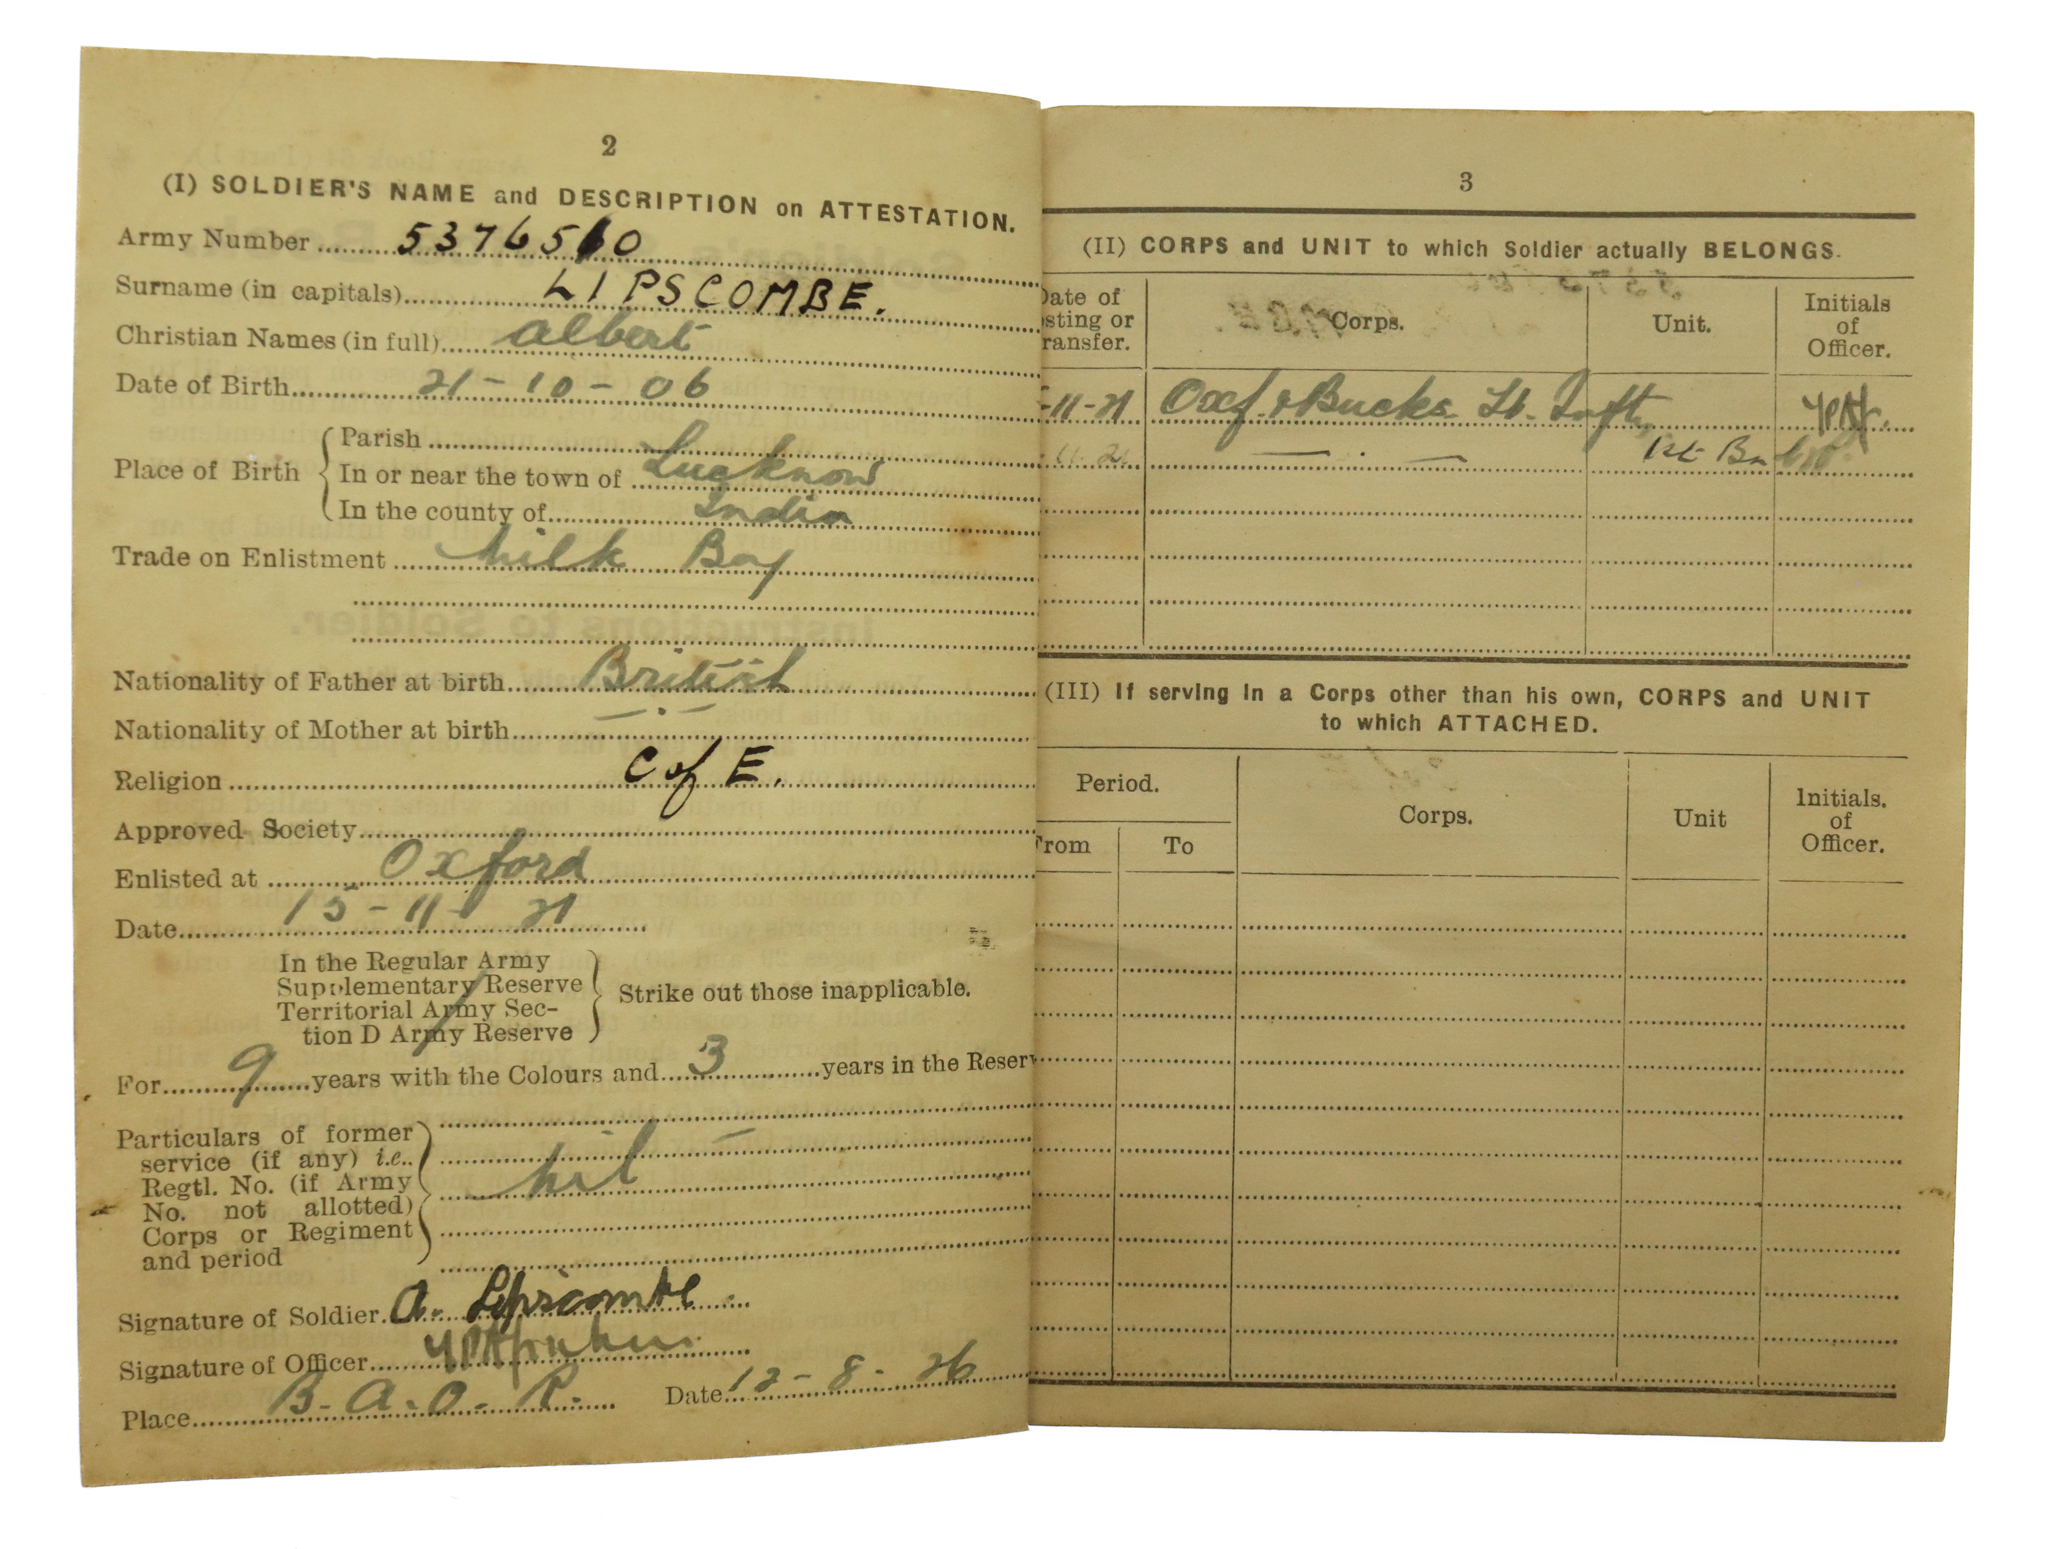 2
(I) SOLDIER'S NAME and DESCRIPTION on ATTESTATION.
Army Number 5376560
Surname (in capitals) LIPSCOMBE.
Christian Names (in full) Albert
Date of Birth 21-10-06
Parish
Place of Birth In or near the town of Lucknow
In the county of India
Trade on Enlistment Milk Boy
Nationality of Father at birth British
Nationality of Mother at birth — . —
Religion C of E.
Approved Society
Enlisted at Oxford
Date 15-11-21
In the Regular Army
Supplementary Reserve
Territorial Army Sec-
tion D Army Reserve
Strike out those inapplicable.
For 9 years with the Colours and 3 years in the Reserv
Particulars of former
service (if any) i.e..
Regtl. No. (if Army
No. not allotted)
Corps or Regiment
and period
nil —
Signature of Soldier. A. Lipscombe
Signature of Officer
Place B.A.O.R. Date 12-8-26
3
(II) CORPS and UNIT to which Soldier actually BELONGS.
Date of
sting or
ransfer.
Corps.
Unit.
Initials
of
Officer.
-11-21 Oxf. & Bucks. Lt. Infty
— . — 1st Bn
(III) If serving in a Corps other than his own, CORPS and UNIT
to which ATTACHED.
Period.
From
To
Corps.
Unit
Initials.
of
Officer.